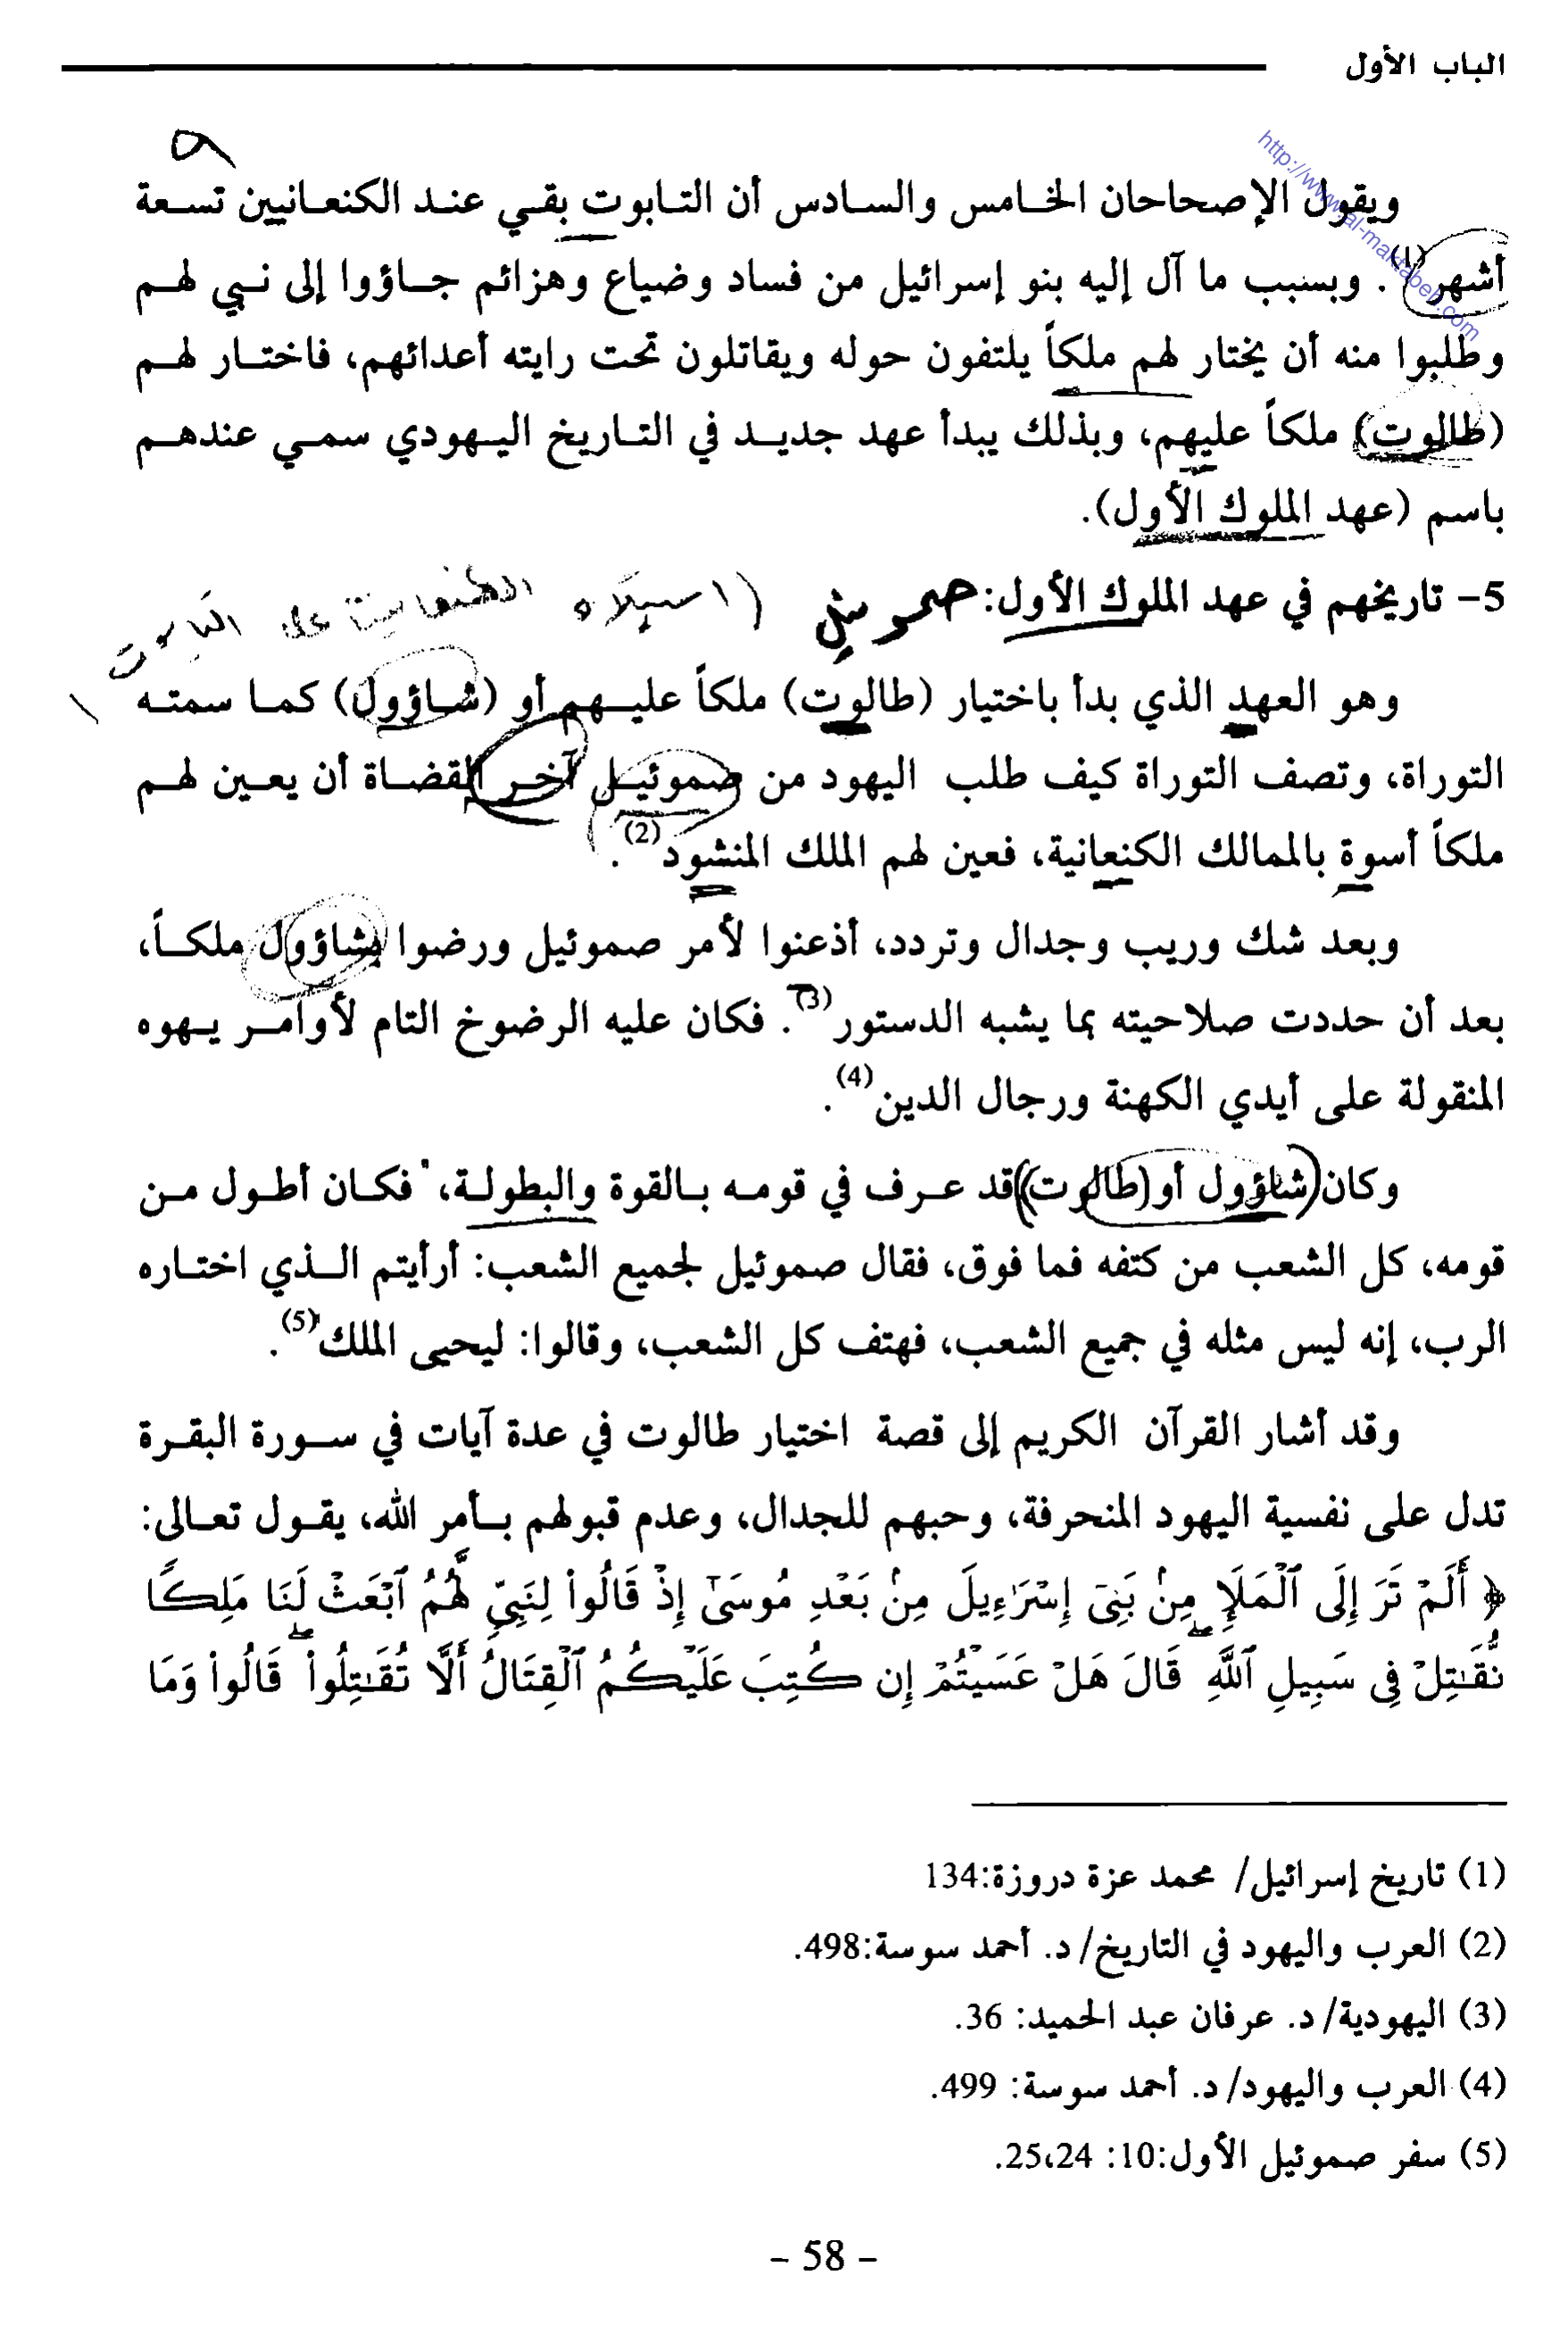 الباب الأول
http://www.al-maktabeh.com
ويقول الإصحاحان الخامس والسادس أن التابوت بقي عند الكنعانيين تسعة
أشهر(1). وبسبب ما آل إليه بنو إسرائيل من فساد وضياع وهزائم جاؤوا إلى نبي لهم
وطلبوا منه أن يختار لهم ملكاً يلتفون حوله ويقاتلون تحت رايته أعدائهم، فاختار لهم
(طالوت) ملكاً عليهم، وبذلك يبدأ عهد جديد في التاريخ اليهودي سمي عندهم
باسم (عهد الملوك الأول).
5- تاريخهم في عهد الملوك الأول:
وهو العهد الذي بدأ باختيار (طالوت) ملكاً عليهم أو (شاؤول) كما سمته
التوراة، وتصف التوراة كيف طلب اليهود من صموئيل آخر القضاة أن يعين لهم
ملكاً أسوة بالممالك الكنعانية، فعين لهم الملك المنشود(2).
وبعد شك وريب وجدال وتردد، أذعنوا لأمر صموئيل ورضوا بشاؤول ملكاً،
بعد أن حددت صلاحيته بما يشبه الدستور(3). فكان عليه الرضوخ التام لأوامر يهوه
المنقولة على أيدي الكهنة ورجال الدين(4).
وكان (شاؤول أو (طالوت)) قد عرف في قومه بالقوة والبطولة، فكان أطول من
قومه، كل الشعب من كتفه فما فوق، فقال صموئيل لجميع الشعب: أرأيتم الذي اختاره
الرب، إنه ليس مثله في جميع الشعب، فهتف كل الشعب، وقالوا: ليحيى الملك(5).
وقد أشار القرآن الكريم إلى قصة اختيار طالوت في عدة آيات في سورة البقرة
تدل على نفسية اليهود المنحرفة، وحبهم للجدال، وعدم قبولهم بأمر الله، يقول تعالى:
﴿ أَلَمْ تَرَ إِلَى ٱلْمَلَإِ مِنۢ بَنِىٓ إِسْرَٰٓءِيلَ مِنۢ بَعْدِ مُوسَىٰٓ إِذْ قَالُوا۟ لِنَبِىٍّ لَّهُمُ ٱبْعَثْ لَنَا مَلِكًا
نُّقَٰتِلْ فِى سَبِيلِ ٱللَّهِ ۖ قَالَ هَلْ عَسَيْتُمْ إِن كُتِبَ عَلَيْكُمُ ٱلْقِتَالُ أَلَّا تُقَٰتِلُوا۟ ۖ قَالُوا۟ وَمَا
(1) تاريخ إسرائيل/ محمد عزة دروزة:134
(2) العرب واليهود في التاريخ/ د. أحمد سوسة:498.
(3) اليهودية/ د. عرفان عبد الحميد: 36.
(4) العرب واليهود/ د. أحمد سوسة: 499.
(5) سفر صموئيل الأول:10: 24،25.
- 58 -